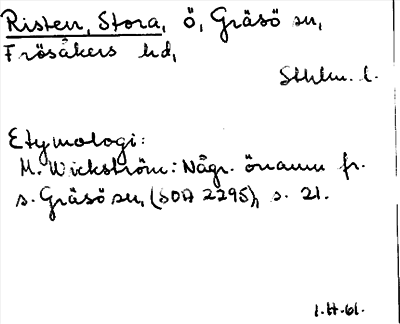 Risten, Stora, ö, Gräsö sn,
Frösåkers hd,
Sthlm. l.
Etymologi:
M. Wickström: Någr. önamn fr.
s. Gräsö sn, (SOA 2295), s. 21.
1.H.61.